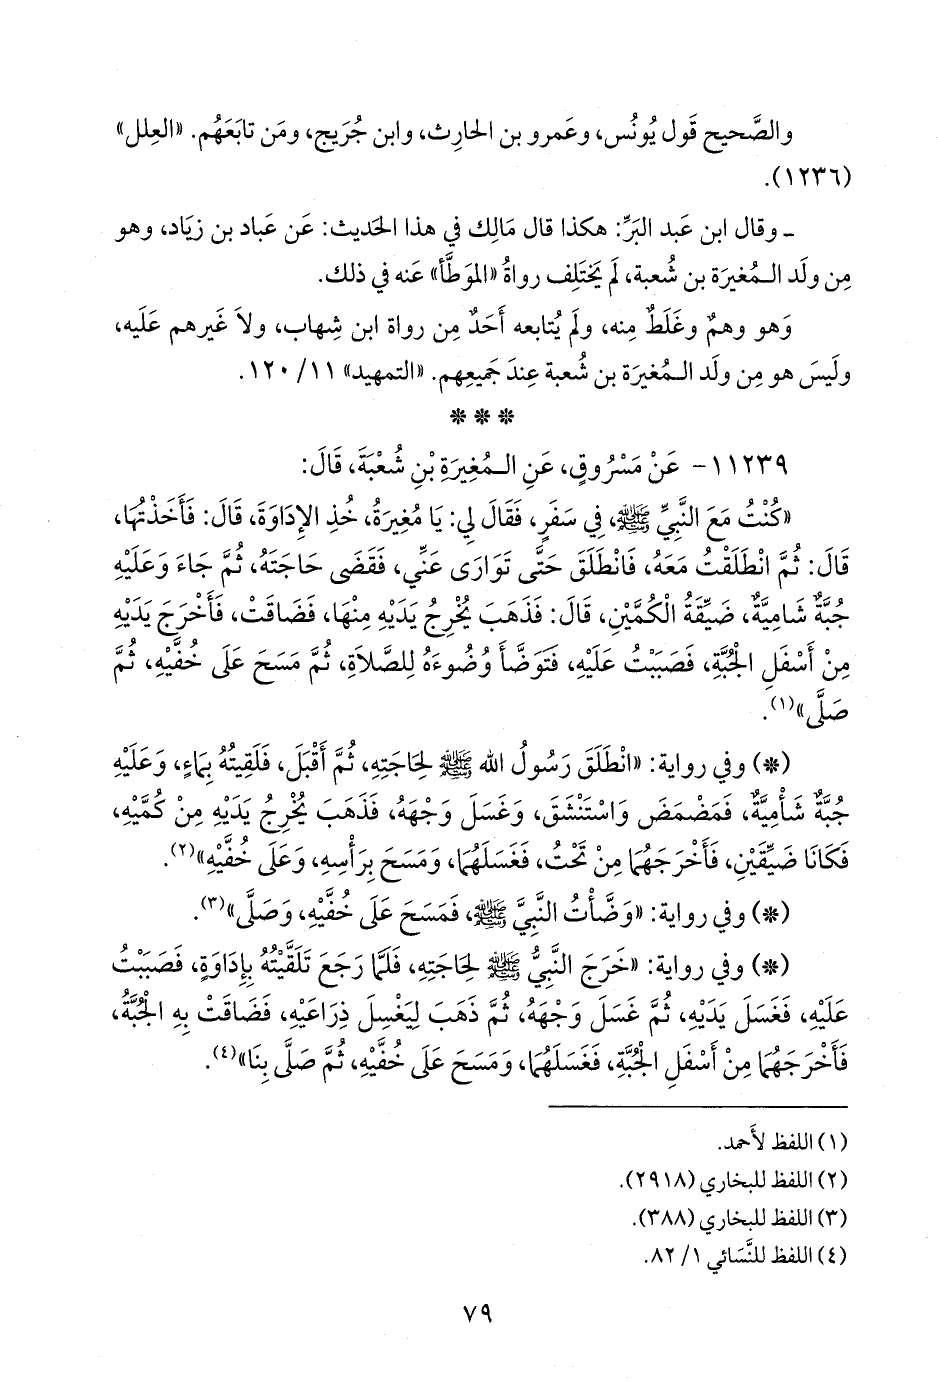 والصَّحيح قَول يُونُس، وعَمرو بن الحارِث، وابن جُرَيج، ومَن تابَعَهُم. «العِلل»
(١٢٣٦).
ـ وقال ابن عَبد البَرِّ: هكذا قال مَالِك في هذا الحَديث: عَن عَباد بن زيَاد، وهو
مِن ولَد الـمُغيرَة بن شُعبة، لَم يَختَلِف رواةُ «الموَطَّأ» عَنه في ذلك.
وَهو وهمٌ وغَلَطٌ مِنه، ولَم يُتابعه أَحَدٌ مِن رواة ابن شِهاب، ولاَ غَيرهم عَلَيه،
ولَيسَ هو مِن ولَد الـمُغيَرة بن شُعبة عِندَ جَميعِهم. «التمهيد» ١١/ ١٢٠.
***
١١٢٣٩- عَنْ مَسْرُوقٍ، عَنِ الـمُغِيرَةِ بْنِ شُعْبَةَ، قَالَ:
«كُنْتُ مَعَ النَّبِيِّ ﷺ، فِي سَفَرٍ، فَقَالَ لِي: يَا مُغِيرَةُ، خُذِ الإِدَاوَةَ، قَالَ: فَأَخَذْتُهَا،
قَالَ: ثُمَّ انْطَلَقْتُ مَعَهُ، فَانْطَلَقَ حَتَّى تَوَارَى عَنِّي، فَقَضَى حَاجَتَهُ، ثُمَّ جَاءَ وَعَلَيْهِ
جُبَّةٌ شَامِيَّةٌ، ضَيِّقَةُ الْكُمَّيْنِ، قَالَ: فَذَهَبَ يُخْرِجُ يَدَيْهِ مِنْهَا، فَضَاقَتْ، فَأَخْرَجَ يَدَيْهِ
مِنْ أَسْفَلِ الْجُبَّةِ، فَصَبَبْتُ عَلَيْهِ، فَتَوَضَّأَ وُضُوءَهُ لِلصَّلاَةِ، ثُمَّ مَسَحَ عَلَى خُفَّيْهِ، ثُمَّ
صَلَّى»(١).
(*) وفي رواية: «انْطَلَقَ رَسُولُ الله ﷺ لِحَاجَتِهِ، ثُمَّ أَقْبَلَ، فَلَقِيتُهُ بِمَاءٍ، وَعَلَيْهِ
جُبَّةٌ شَأْمِيَّةٌ، فَمَضْمَضَ وَاسْتَنْشَقَ، وَغَسَلَ وَجْهَهُ، فَذَهَبَ يُخْرِجُ يَدَيْهِ مِنْ كُمَّيْهِ،
فَكَانَا ضَيِّقَيْنِ، فَأَخْرَجَهُمَا مِنْ تَحْتُ، فَغَسَلَهُمَا، وَمَسَحَ بِرَأْسِهِ، وَعَلَى خُفَّيْهِ»(٢).
(*) وفي رواية: «وَضَّأْتُ النَّبِيَّ ﷺ، فَمَسَحَ عَلَى خُفَّيْهِ، وَصَلَّى»(٣).
(*) وفي رواية: «خَرَجَ النَّبِيُّ ﷺ لِحَاجَتِهِ، فَلَمَّا رَجَعَ تَلَقَّيْتُهُ بِإِدَاوَةٍ، فَصَبَبْتُ
عَلَيْهِ، فَغَسَلَ يَدَيْهِ، ثُمَّ غَسَلَ وَجْهَهُ، ثُمَّ ذَهَبَ لِيَغْسِلَ ذِرَاعَيْهِ، فَضَاقَتْ بِهِ الْجُبَّةُ،
فَأَخْرَجَهُمَا مِنْ أَسْفَلِ الْجُبَّةِ، فَغَسَلَهُمَا، وَمَسَحَ عَلَى خُفَّيْهِ، ثُمَّ صَلَّى بِنَا»(٤).
(١) اللفظ لأَحمد.
(٢) اللفظ للبخاري (٢٩١٨).
(٣) اللفظ للبخاري (٣٨٨).
(٤) اللفظ للنَّسَائي ١/ ٨٢.
٧٩